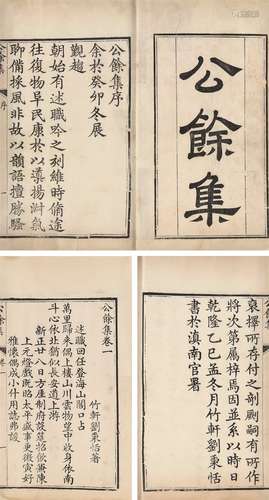 公餘集
公餘集序
余於癸卯冬展
覲趨
朝始有述職吟之刻維時脩途
往復物阜民康於以導揚淑氣
聊備採風非故以韻語擅勝騷
公餘集
序
公餘集卷一
竹軒劉秉恬著
述職回任登海山閣口占
萬里歸來偶上樓山川雲物望中收身依南
斗心依北猶似長安道上游
新正廿八日
上元燈戲
雅懷偶成小什用誌弗諼
公餘集
卷一
裒擇所存付之剞劂嗣有所作
將次第屬梓焉因並系以時日
乾隆乙巳孟冬月竹軒劉秉恬
書於滇南官署